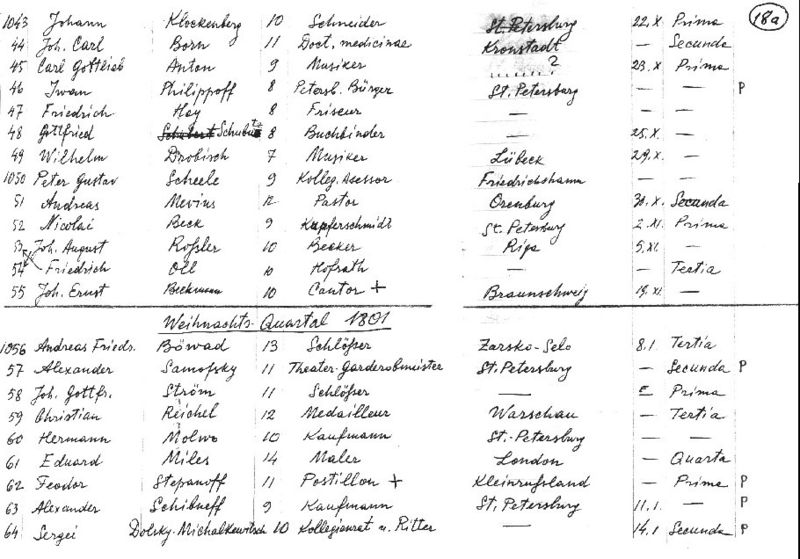 18a
1043 Johann Klockenberg 10 Schneider St. Petersburg 22.X. Prima
44 Joh. Carl Born 11 Doct. medicinae Kronstadt — Secunda
45 Carl Gottlieb Anton 9 Musiker ? 23.X. Prima
46 Iwan Philippoff 8 Petersb. Bürger St. Petersburg — — P
47 Friedrich Hay 8 Friseur — — —
48 Gottfried Schubert 8 Buchbinder — 25.X. —
49 Wilhelm Drobisch 7 Musiker Lübeck 29.X. —
1050 Peter Gustav Scheele 9 Kolleg. Asessor Friedrichshamn — —
51 Andreas Mevius 12 Pastor Orenburg 30.X. Secunda
52 Nicolai Beck 9 Kupferschmidt St. Petersburg 2.XI. Prima
53 Joh. August Roßler 10 Becker Riga 5.XI. —
54 Friedrich Oll 10 Hofrath — — Tertia
55 Joh. Ernst Beckmann 10 Cantor + Braunschweig 19.XI. —
Weihnachts-Quartal 1801
1056 Andreas Frieds. Böwad 13 Schlößer Zarsko-Selo 8.1. Tertia
57 Alexander Samofsky 11 Theater-Garderobmeister St. Petersburg — Secunda P
58 Joh. Gottfr. Ström 11 Schlößer — — Prima
59 Christian Reichel 12 Medailleur Warschau — Tertia
60 Hermann Molwo 10 Kaufmann St.-Petersburg — —
61 Eduard Miles 14 Maler London — Quarta
62 Feodor Stepanoff 11 Postillon + Kleinrußland — Prima P
63 Alexander Schibneff 9 Kaufmann St. Petersburg 11.1. — P
64 Sergei Dolsky-Michalkewitsch 10 Kollegienrat u. Ritter — 14.1 Secunda P